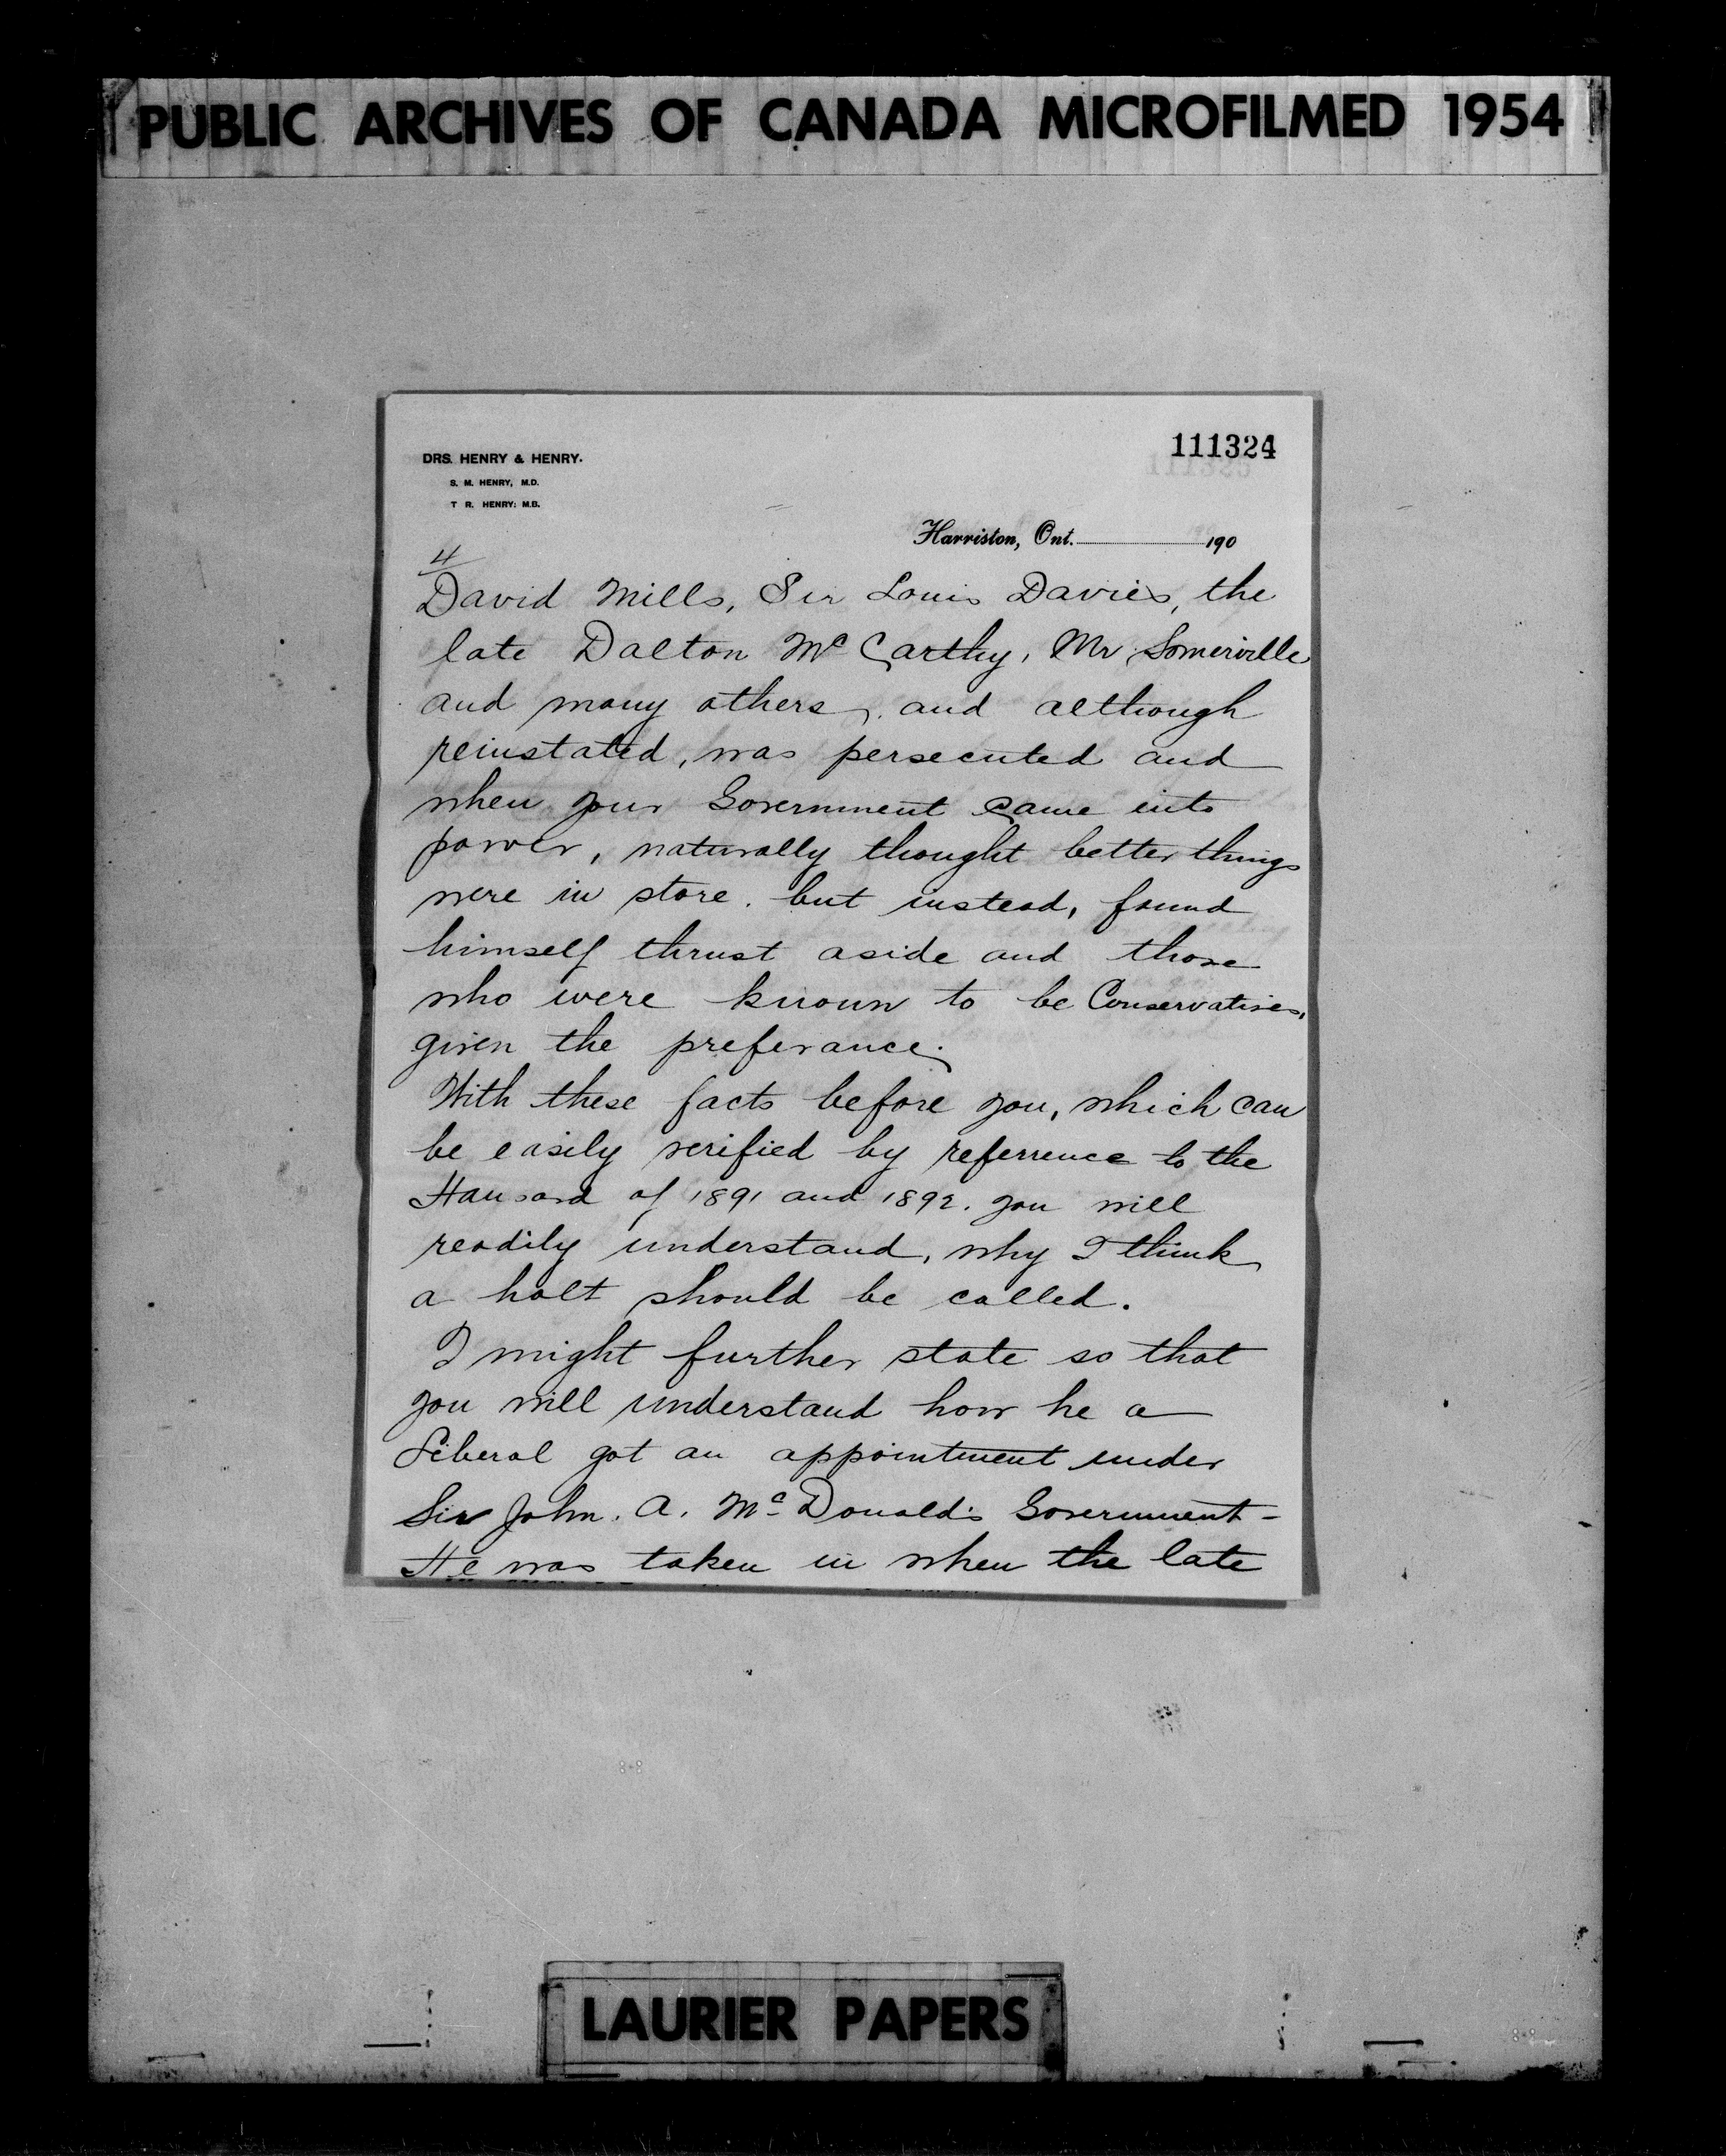 PUBLIC ARCHIVES OF CANADA MICROFILMED 1954
111324
DRS. HENRY & HENRY.
S. M. HENRY, M.D.
T R. HENRY: M.B.
Harriston, Ont. 190
4
David Mills, Sir Louis Davies, the
late Dalton McCarthy, Mr Somerville
and many others, and although
reinstated, was persecuted and
when your Government came into
power, naturally thought better things
were in store. but instead, found
himself thrust aside and those
who were known to be Conservatives,
given the preferance.
With these facts before you, which can
be easily verified by referrence to the
Hansard of 1891 and 1892. you will
readily understand, why I think
a halt should be called.
I might further state so that
you will understand how he a
Liberal got an appointment under
Sir John. A. McDonald's Government -
He was taken in when the late
LAURIER PAPERS